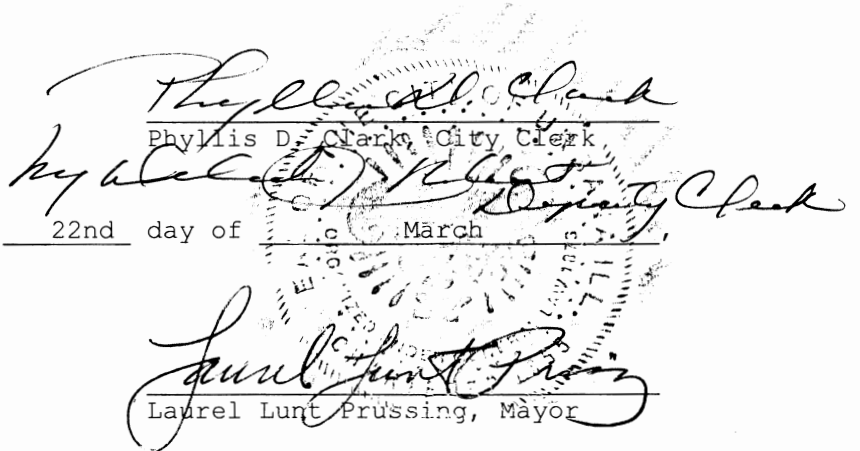 Phyllis D. Clark
Phyllis D. Clark, City Clerk
by Deputy Clerk
22nd day of March,
Laurel Lunt Prussing
Laurel Lunt Prussing, Mayor